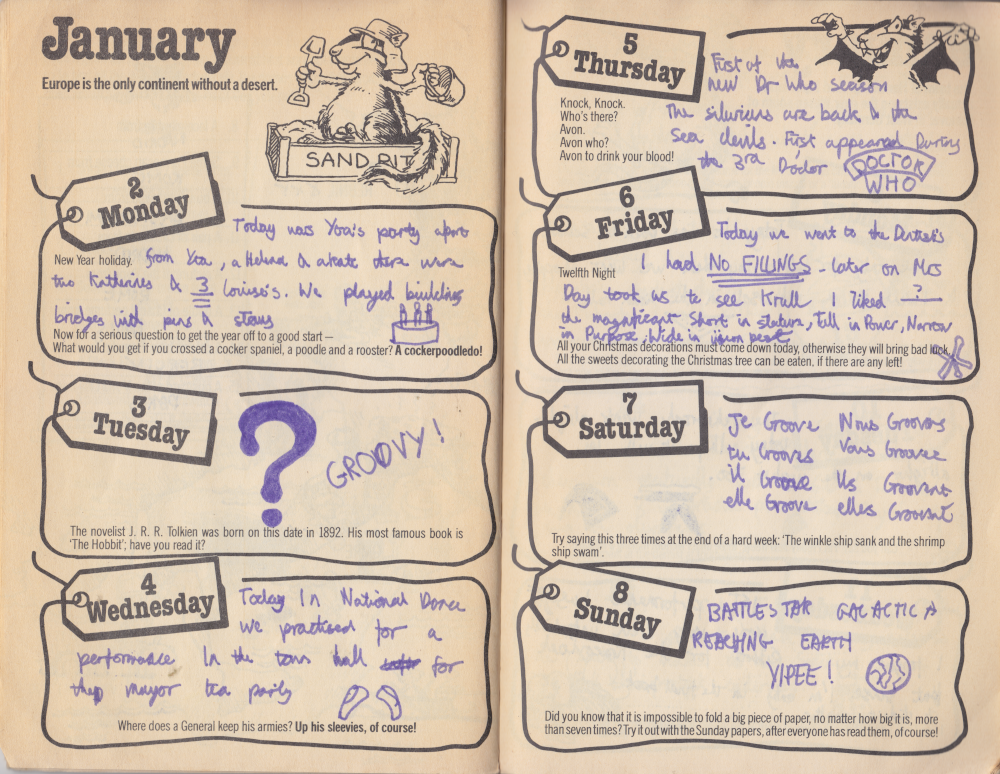 January
Europe is the only continent without a desert.
SAND PIT
2
Monday
Today was Yoa's party apart
New Year holiday.
from Yoa, a Helena & a kate there were
two Katherines & 3 Louise's. We played building
bridges with pins & straws
Now for a serious question to get the year off to a good start –
What would you get if you crossed a cocker spaniel, a poodle and a rooster? A cockerpoodledo!
3
Tuesday
?
GROOVY!
The novelist J. R. R. Tolkien was born on this date in 1892. His most famous book is
'The Hobbit'; have you read it?
4
Wednesday
Today In National Dance
we practised for a
performance In the town hall for
the mayor tea party
Where does a General keep his armies? Up his sleevies, of course!
5
Thursday
First of the
new Dr Who season
Knock, Knock.
Who's there?
Avon.
Avon who?
Avon to drink your blood!
The silurians are back & the
Sea devils. First appeared During
the 3rd Doctor
DOCTOR
WHO
6
Friday
Today we went to the Dentist's
Twelfth Night
I had NO FILLINGS - later on Mrs
Day took us to see Krull I liked ?
the magnificent Short in stature, Tall in Power, Narrow
in Purpose, Wide in
All your Christmas decorations must come down today, otherwise they will bring bad luck.
All the sweets decorating the Christmas tree can be eaten. if there are any left!
7
Saturday
Je Groove Nous Groovons
tu Grooves Vous Groovez
il Groove Ils Groovent
elle Groove elles Groovent
Try saying this three times at the end of a hard week: 'The winkle ship sank and the shrimp
ship swam'.
8
Sunday
BATTLESTAR GALACTICA
REACHING EARTH
YIPEE!
Did you know that it is impossible to fold a big piece of paper, no matter how big it is, more
than seven times? Try it out with the Sunday papers, after everyone has read them, of course!